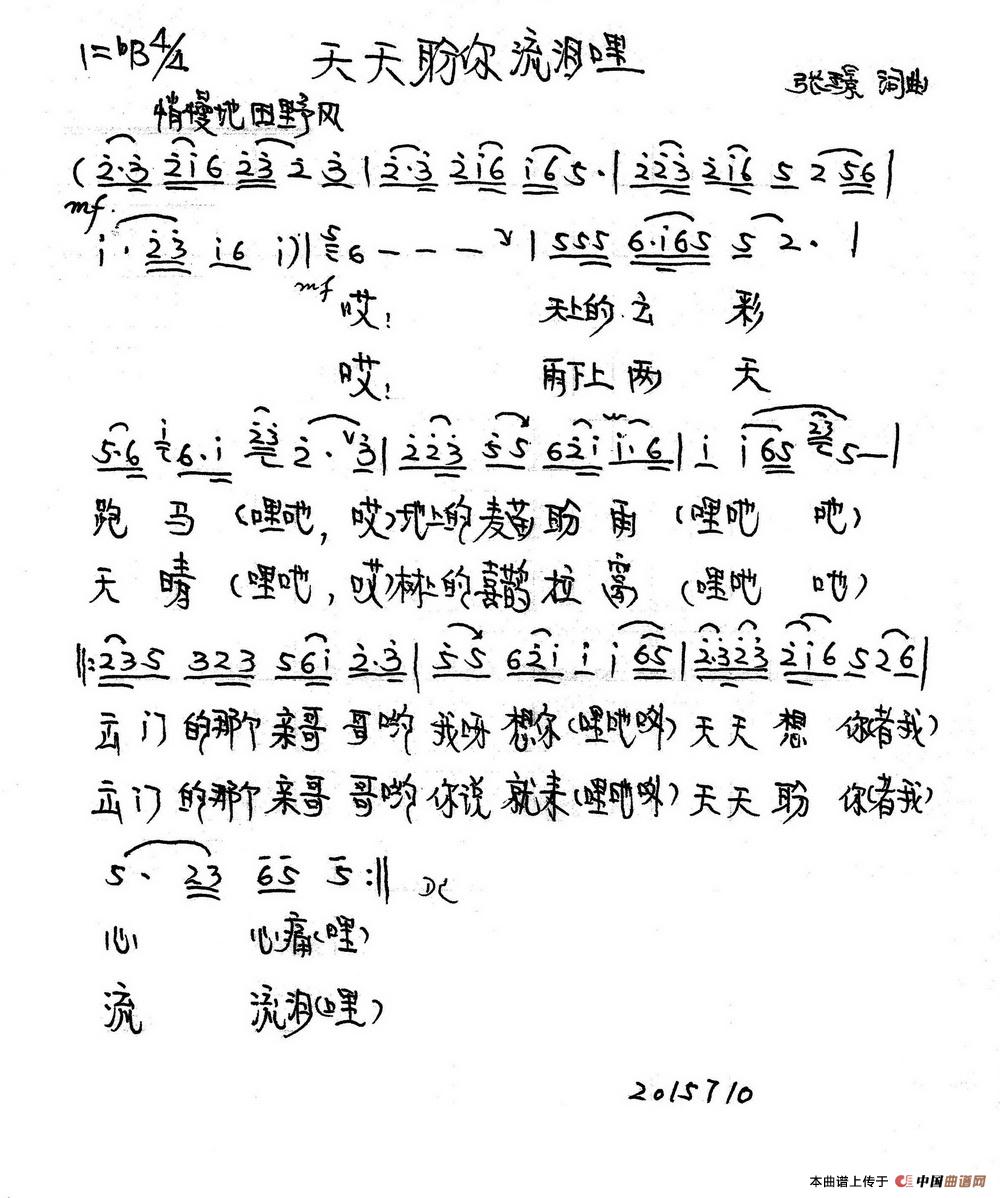 1=bB 4/4 天天盼你流泪哩
张璟 词曲
悄慢地 田野风
(2·3 2i6 23 2 3 | 2·3 2i6 i6 5· | 223 2i6 5 2 56 |
mf.
i· 23 i6 i)| 5 6 - - - | 555 6·i65 5 2· |
mf
哎! 天上的云 彩
哎! 雨下上两 天
5·6 i 6·i 23 2· 3 | 223 55 62i i·6 | i i65 23 5- |
跑马(哩吔,哎)地上的麦苗盼雨(哩吔 吔)
天晴(哩吔,哎)林上的喜鹊拉窝(哩吔 吔)
‖:235 323 56i 2·3 | 55 62i i i65 | 2·323 2i6 526 |
云门的那个亲哥哥哟我呀想你(哩吔)天天想你(者我)
云门的那个亲哥哥哟你说就来(哩吔)天天盼你(者我)
5· 23 65 5 :‖ DC
心 心痛(哩)
流 流泪(哩)
2015710
本曲谱上传于 中国曲谱网